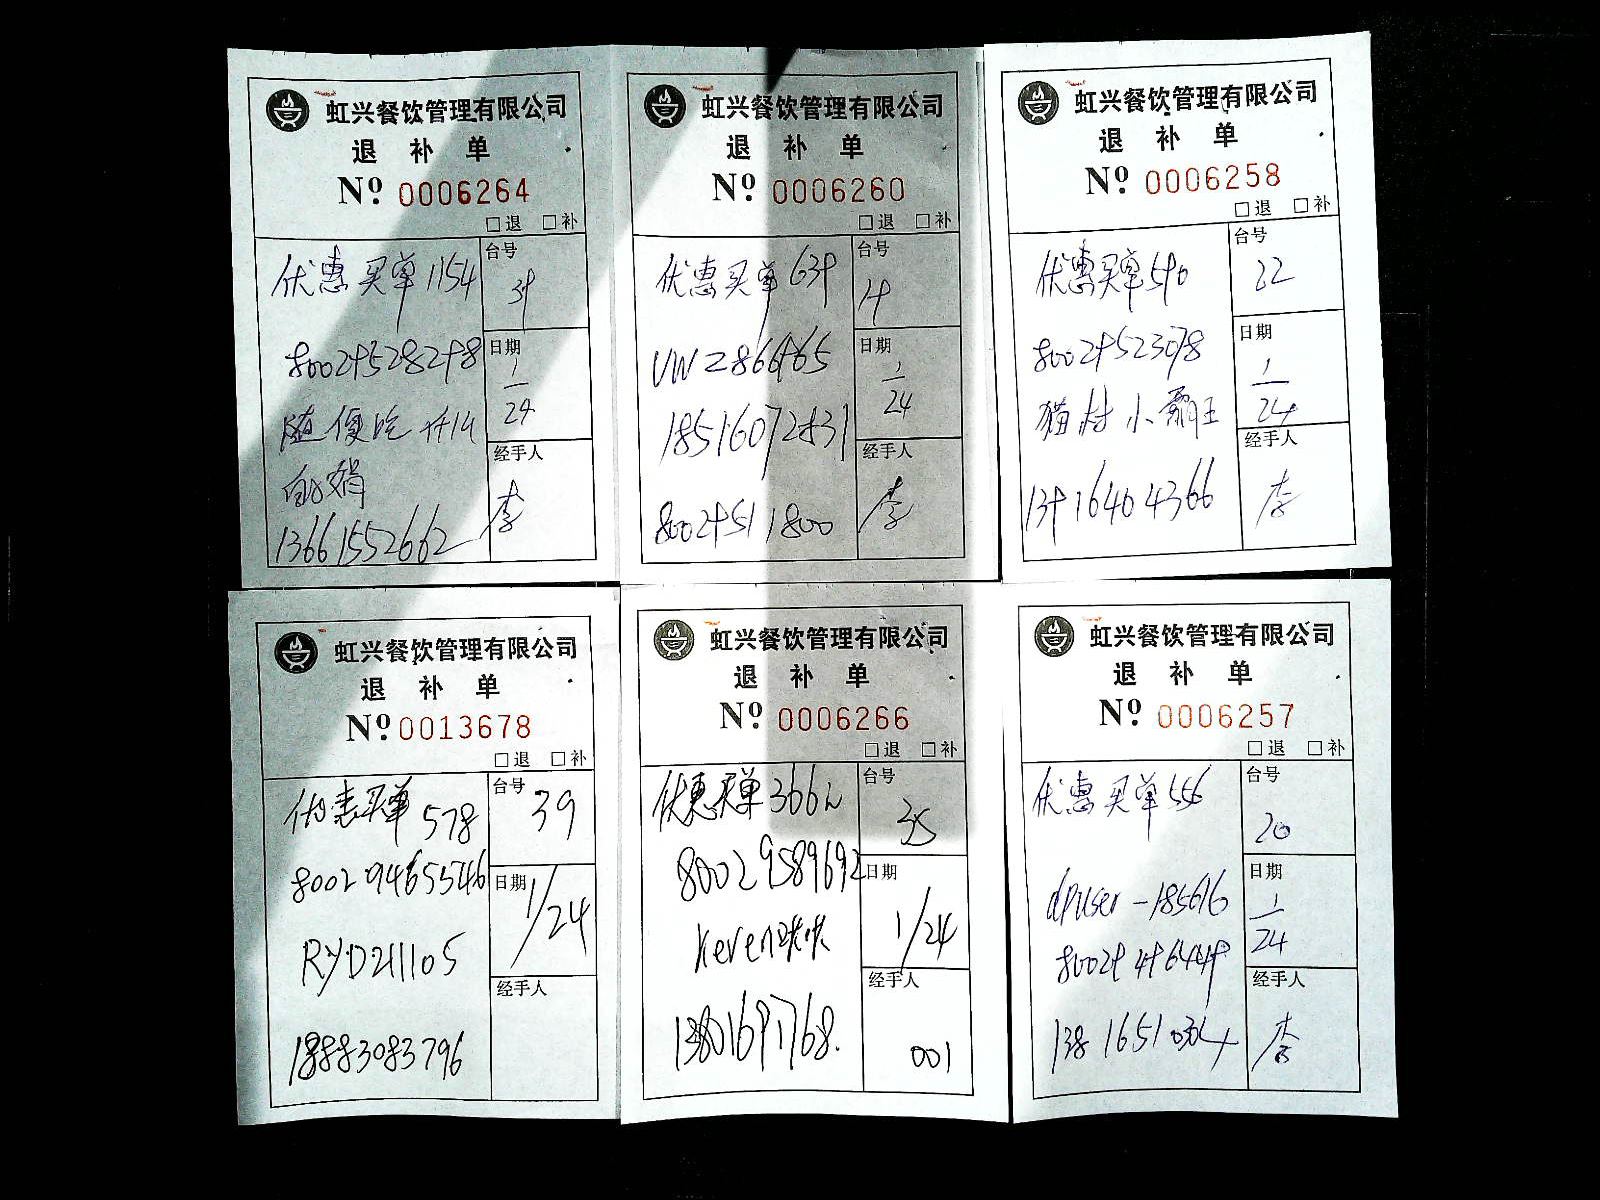 虹兴餐饮管理有限公司
退 补 单
Nº 0006264
□退 □补
优惠买单 1154
台号
39
80029528298
日期
1/24
随便吃
经手人
李
13661552662
虹兴餐饮管理有限公司
退 补 单
Nº 0006260
□退 □补
优惠买单 639
台号
19
日期
1/24
18516072831
经手人
李
80029511800
虹兴餐饮管理有限公司
退 补 单
Nº 0006258
□退 □补
优惠买单 590
台号
22
80029523098
日期
1/24
猫村小霸王
经手人
李
13916404366
虹兴餐饮管理有限公司
退 补 单
Nº 0013678
□退 □补
优惠买单 578
台号
39
80029465546
日期
1/24
RYD211105
经手人
18883083796
虹兴餐饮管理有限公司
退 补 单
Nº 0006266
□退 □补
优惠买单 366
台号
35
80029589692
日期
1/24
经手人
13801691768.
001
虹兴餐饮管理有限公司
退 补 单
Nº 0006257
□退 □补
优惠买单 556
台号
20
日期
1/24
dpuser-185616
经手人
李